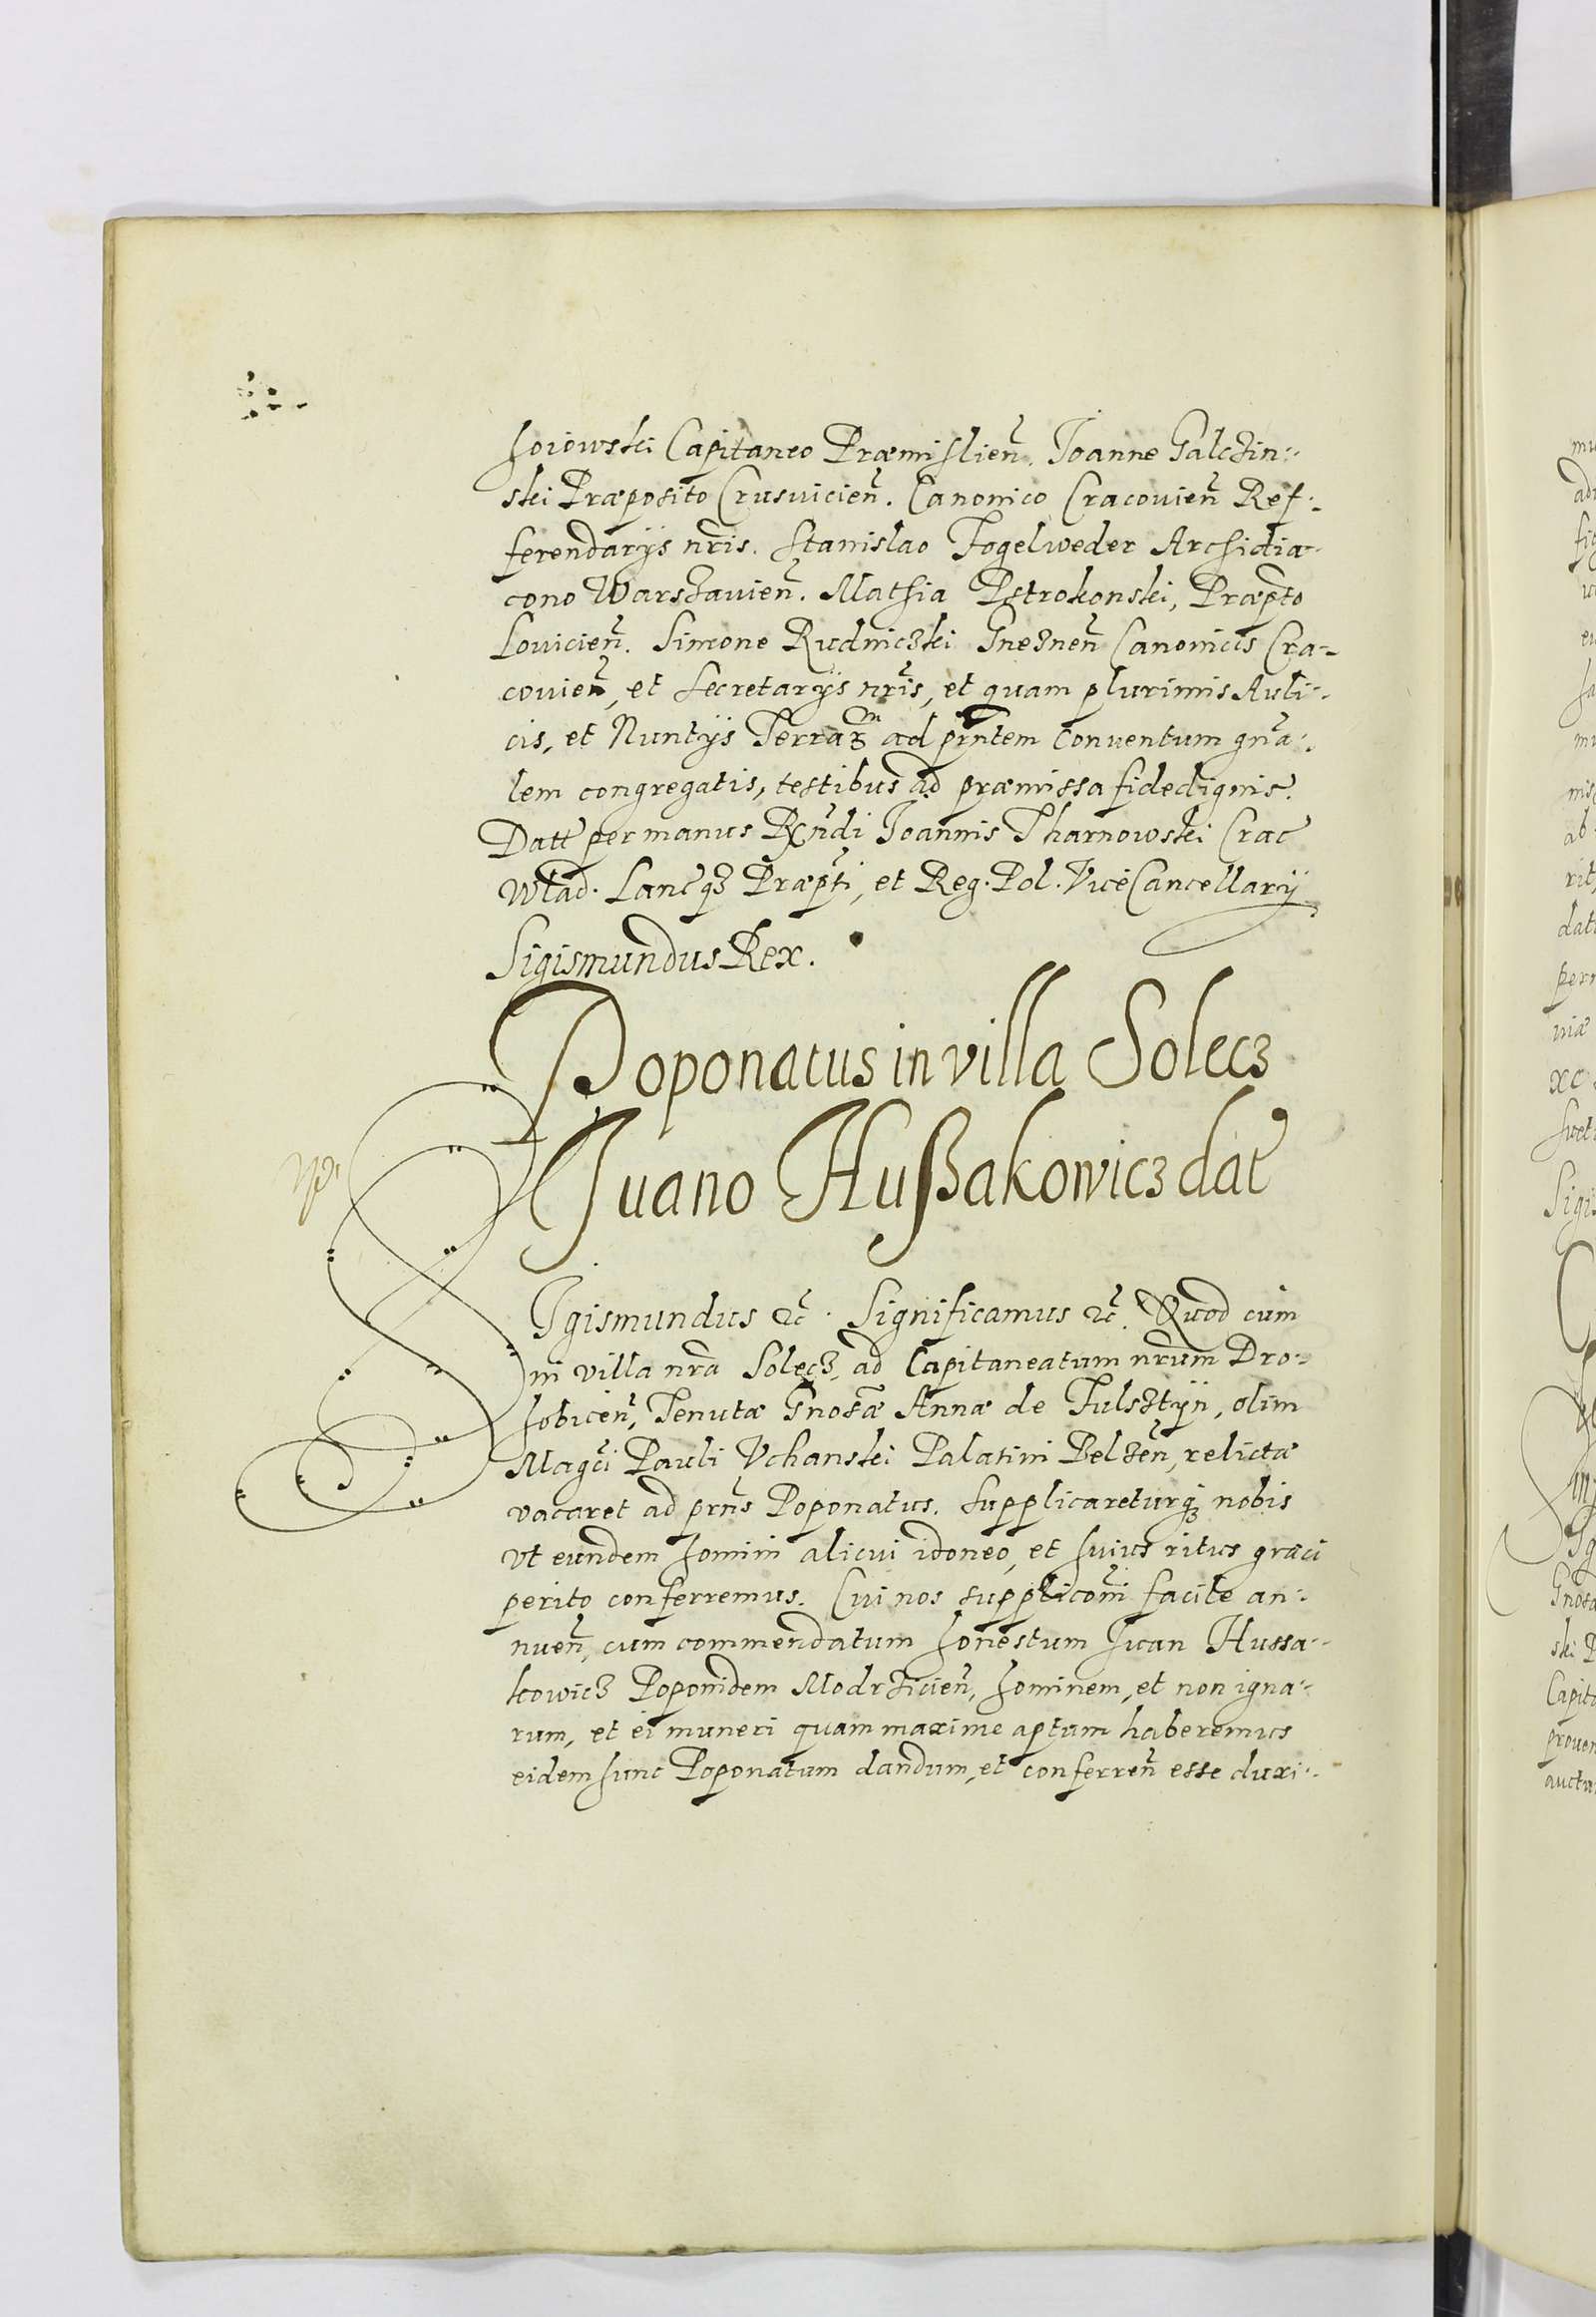 hoiowski Capitaneo Præmislien̄. Joanne Galczin:
ski Præposito Crusvicien̄. Canonico Cracouien̄ Ref:
ferendarijs nr̄is. Stanislao Fogelweder Archidia:
cono Warszauien̄. Mathia Pstrokonski, Præp̄to
Louicien̄. Simone Rudniczki Gneznen̄ Canonicis Cra:
couien̄, et Secretarijs nr̄is, et quam plurimis Auli:
cis, et Nuntijs Terraꝝ ad pr̄ntem Conuentum gn̄a:
lem congregatis, testibus ad præmissa fidedignis.
Datt̄ per manus Rn̄di Joannis Tharnowski Crac̄
Wlad. Lanc̄qꝫ Præp̄ti, et Reg. Pol. ViceCancellarij
Sigismundus Rex.
Poponatus in villa Solecz
Juano Hußakowicz dat̄
SIgismundus ꝛc̄. Significamus ꝛc̄. Quod cum
in villa nr̄a Solecz, ad Capitaneatum nr̄um Dro:
hobicen̄, Tenutæ Gnosæ Annæ de Fulsztijn, olim
Magc̄i Pauli Vchanski Palatini Belzen̄, relictæ
vacaret ad prn̄s Poponatus. Supplicareturqꝫ nobis
vt eundem homini alicui idoneo, et huius ritus græci
perito conferremus. Cui nos supplicōni facile an:
nuen̄, cum commendatum honestum Juan Hussa:
kowicz Poponidem Modrzicien̄, hominem, et non igna:
rum, et ei muneri quam maxime aptum haberemus
eidem hunc Poponatum dandum, et conferren̄ esse duxi: